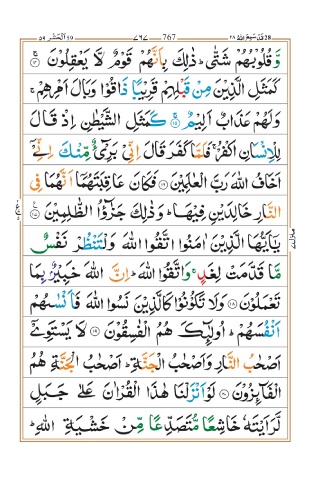 قد سمع الله ٢٨ 767 ٧٦٧ الحشر ٥٩
وَّ قُلُوْبُهُمْ شَتّٰیؕ ذٰلِكَ بِاَنَّهُمْ قَوْمٌ لَّا یَعْقِلُوْنَۚ ۝۱۴
كَمَثَلِ الَّذِیْنَ مِنْ قَبْلِهِمْ قَرِیْبًا ذَاقُوْا وَبَالَ اَمْرِهِمْۚ
وَلَهُمْ عَذَابٌ اَلِیْمٌۚ ۝۱۵ كَمَثَلِ الشَّیْطٰنِ اِذْ قَالَ
لِلْاِنْسَانِ اكْفُرْۚ فَلَمَّا كَفَرَ قَالَ اِنِّیْ بَرِیْٓءٌ مِّنْكَ اِنِّیْۤ
اَخَافُ اللّٰهَ رَبَّ الْعٰلَمِیْنَ ۝۱۶ فَكَانَ عَاقِبَتَهُمَاۤ اَنَّهُمَا فِی
النَّارِ خَالِدَیْنِ فِیْهَاؕ وَذٰلِكَ جَزٰٓؤُا الظّٰلِمِیْنَ۠ ۝۱۷
یٰۤاَیُّهَا الَّذِیْنَ اٰمَنُوا اتَّقُوا اللّٰهَ وَلْتَنْظُرْ نَفْسٌ
مَّا قَدَّمَتْ لِغَدٍۚ وَاتَّقُوا اللّٰهَؕ اِنَّ اللّٰهَ خَبِیْرٌۢ بِمَا
تَعْمَلُوْنَ ۝۱۸ وَلَا تَكُوْنُوْا كَالَّذِیْنَ نَسُوا اللّٰهَ فَاَنْسٰىهُمْ
اَنْفُسَهُمْؕ اُولٰٓىِٕكَ هُمُ الْفٰسِقُوْنَ ۝۱۹ لَا یَسْتَوِیْۤ
اَصْحٰبُ النَّارِ وَاَصْحٰبُ الْجَنَّةِؕ اَصْحٰبُ الْجَنَّةِ هُمُ
الْفَآىِٕزُوْنَ ۝۲۰ لَوْ اَنْزَلْنَا هٰذَا الْقُرْاٰنَ عَلٰی جَبَلٍ
لَّرَاَیْتَهٗ خَاشِعًا مُّتَصَدِّعًا مِّنْ خَشْیَةِ اللّٰهِؕ